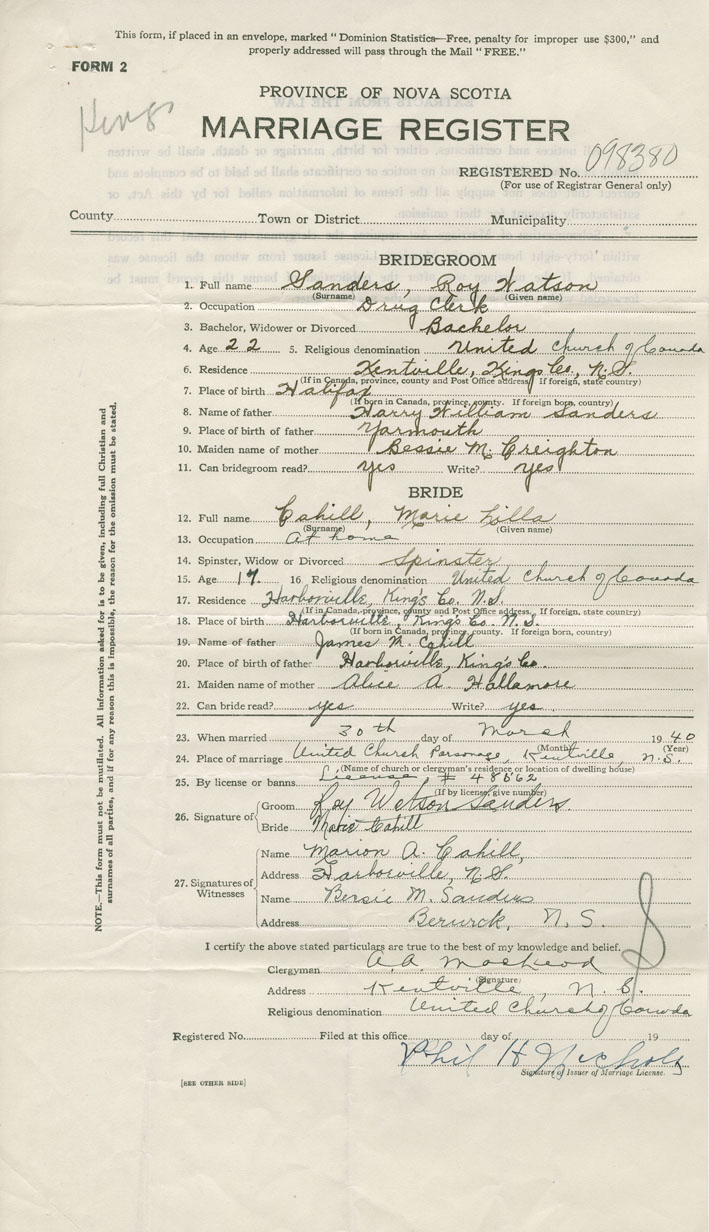 This form, if placed in an envelope, marked "Dominion Statistics—Free, penalty for improper use $300," and
properly addressed will pass through the Mail "FREE."
FORM 2
PROVINCE OF NOVA SCOTIA
Kings
MARRIAGE REGISTER
REGISTERED No. 098380
(For use of Registrar General only)
County Town or District Municipality
BRIDEGROOM
1. Full name Sanders, Roy Watson
(Surname) (Given name)
2. Occupation Drug Clerk
3. Bachelor, Widower or Divorced Bachelor
4. Age 22 5. Religious denomination United Church of Canada
6. Residence Kentville, Kings Co., N.S.
(If in Canada, province, county and Post Office address. If foreign, state country)
7. Place of birth Halifax
(If born in Canada, province, county. If foreign born, country)
8. Name of father Harry William Sanders
9. Place of birth of father Yarmouth
10. Maiden name of mother Bessie M. Creighton
11. Can bridegroom read? yes Write? yes
BRIDE
12. Full name Cahill, Marie Lilla
(Surname) (Given name)
13. Occupation At home
14. Spinster, Widow or Divorced Spinster
15. Age 17. 16 Religious denomination United Church of Canada
17. Residence Harborville, King's Co. N.S.
(If in Canada, province, county and Post Office address. If foreign, state country)
18. Place of birth Harborville, King's Co. N.S.
(If born in Canada, province, county. If foreign born, country)
19. Name of father James M. Cahill
20. Place of birth of father Harborville, King's Co.
21. Maiden name of mother Alice A. Hallamore
22. Can bride read? yes Write? yes
23. When married 30th day of March 1940
(Month) (Year)
24. Place of marriage United Church Parsonage, Kentville, N.S.
(Name of church or clergyman's residence or location of dwelling house)
25. By license or banns License, #
(If by license, give number)
26. Signature of Groom Roy Watson Sanders
Bride Marie Cahill
27. Signatures of Witnesses
Name Marion A. Cahill,
Address Harborville, N.S.
Name Bessie M. Sanders
Address Berwick, N.S.
I certify the above stated particulars are true to the best of my knowledge and belief.
Clergyman A.A. MacLeod
(Signature)
Address Kentville, N.S.
Religious denomination United Church of Canada
Registered No. Filed at this office day of 19
Phil H Nichols
Signature of Issuer of Marriage License.
[SEE OTHER SIDE]
NOTE.—This form must not be mutilated. All information asked for is to be given, including full Christian and
surnames of all parties, and if for any reason this is impossible, the reason for the omission must be stated.